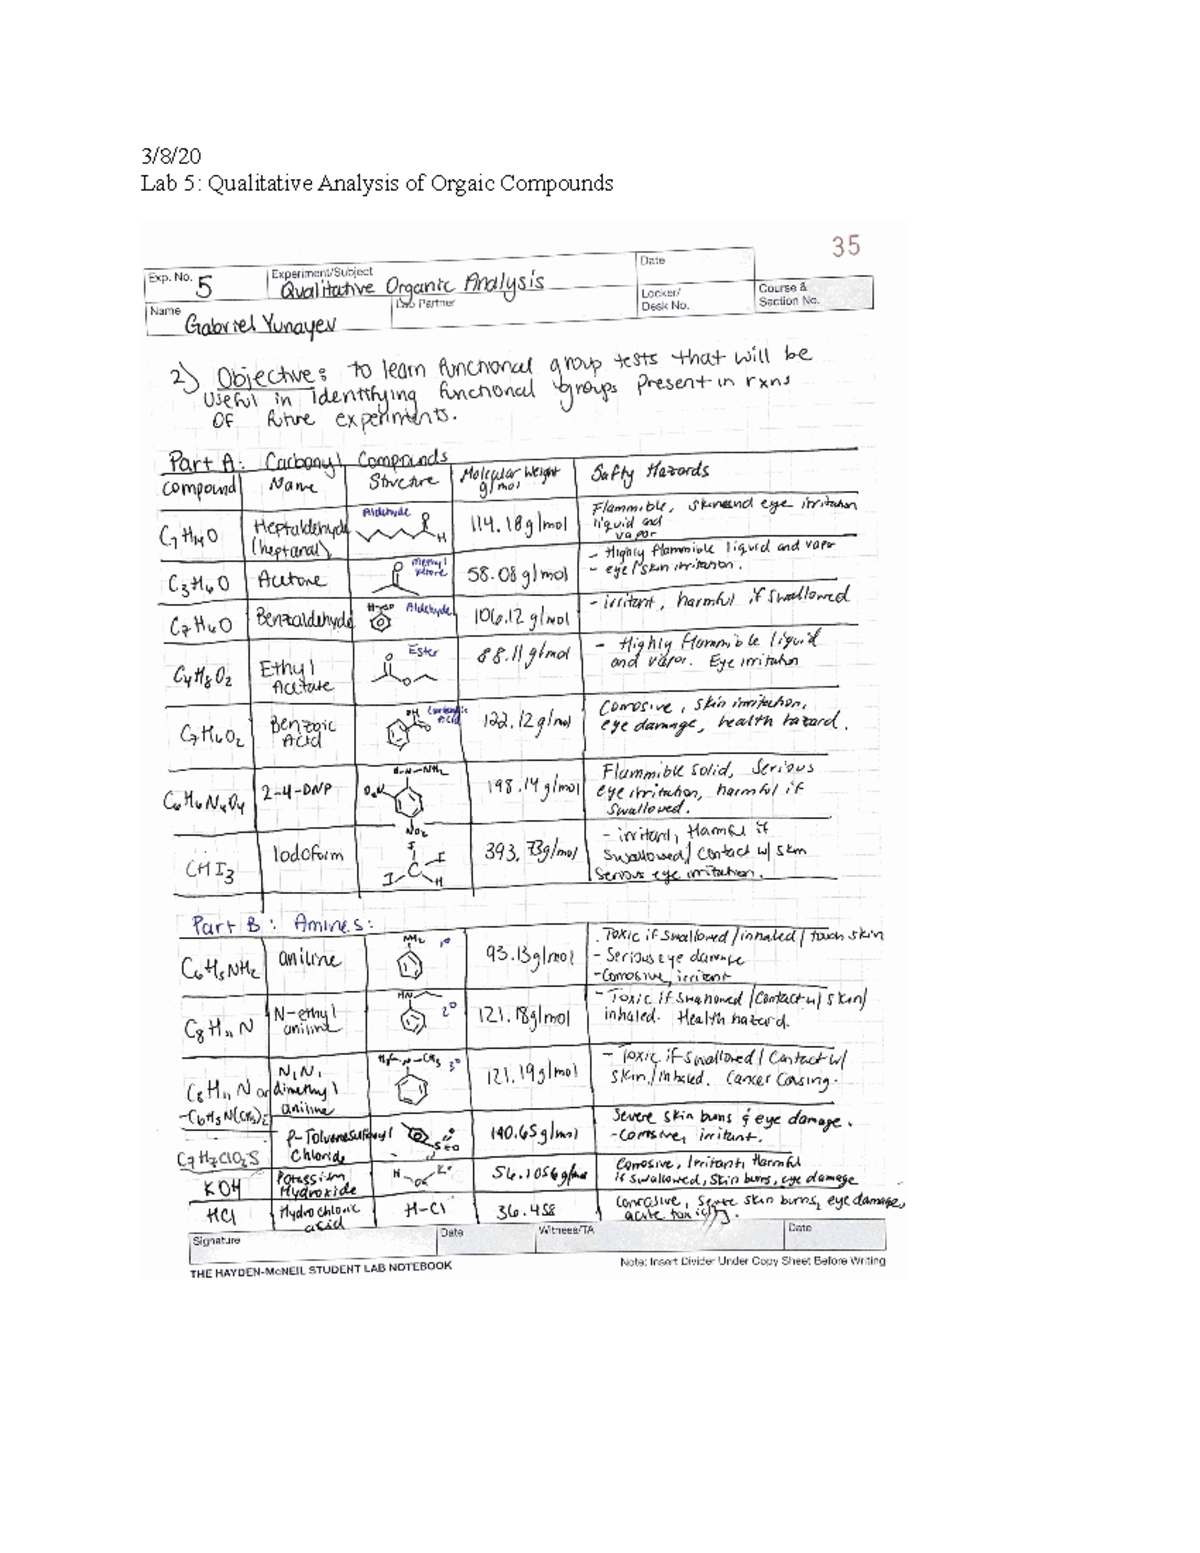 3/8/20
Lab 5: Qualitative Analysis of Orgaic Compounds
35
Exp. No. 5
Experiment/Subject
Qualitative Organic Analysis
Date
Name
Gabriel Yunayev
Lab Partner
Locker/
Desk No.
Course &
Section No.
2) Objective: to learn functional group tests that will be
useful in identifying functional groups present in rxns
of future experiments.
Part A: Carbonyl Compounds
Compound Name Structure Molecular Weight g/mol Safty Hazards
C7H14O Heptaldehyde (heptanal) Aldehyde H 114.18 g/mol Flammible, skin and eye irritation liquid and vapor
C3H6O Acetone Methyl Ketone 58.08 g/mol - Highly flammible liquid and vapor - eye/skin irritation.
C7H6O Benzaldehyde Aldehyde 106.12 g/mol - irritant, harmful if swallowed
C4H8O2 Ethyl Acetate Ester 88.11 g/mol - Highly flammible liquid and vapor. Eye irritation
C7H6O2 Benzoic Acid OH Carboxylic Acid 122.12 g/mol Corrosive, skin irritation, eye damage, health hazard.
C6H6N4O4 2-4-DNP NO2 198.14 g/mol Flammible solid, Serious eye irritation, harmful if swallowed.
CHI3 Iodoform I I C I H 393.73 g/mol - irritant, Harmful if swallowed/ Contact w/ skin Serious eye irritation.
Part B: Amines:
C6H5NH2 aniline NH2 1° 93.13 g/mol . Toxic if swallowed/inhaled/touch skin - Serious eye damage - Corrosive, irritant
C8H11N N-ethyl aniline HN 2° 121.18 g/mol - Toxic if swallowed/Contact w/ skin/ inhaled. Health hazard.
C8H11N or -C6H5N(CH3)2 N,N, dimethyl aniline N-CH3 3° 121.19 g/mol - Toxic if swallowed/Contact w/ skin/inhaled. Cancer Causing.
C7H7ClO2S p-Toluenesulfonyl Chloride 190.65 g/mol Severe skin burns & eye damage. - Corrosive, irritant.
KOH Potassium Hydroxide 56.1056 g/mol Corrosive, Irritant, Harmful if swallowed, Skin burns, eye damage
HCl Hydrochloric acid H-Cl 36.458 Corrosive, Severe skin burns, eye damage, acute toxicity.
Signature
Date
Witness/TA
Date
THE HAYDEN-McNEIL STUDENT LAB NOTEBOOK
Note: Insert Divider Under Copy Sheet Before Writing